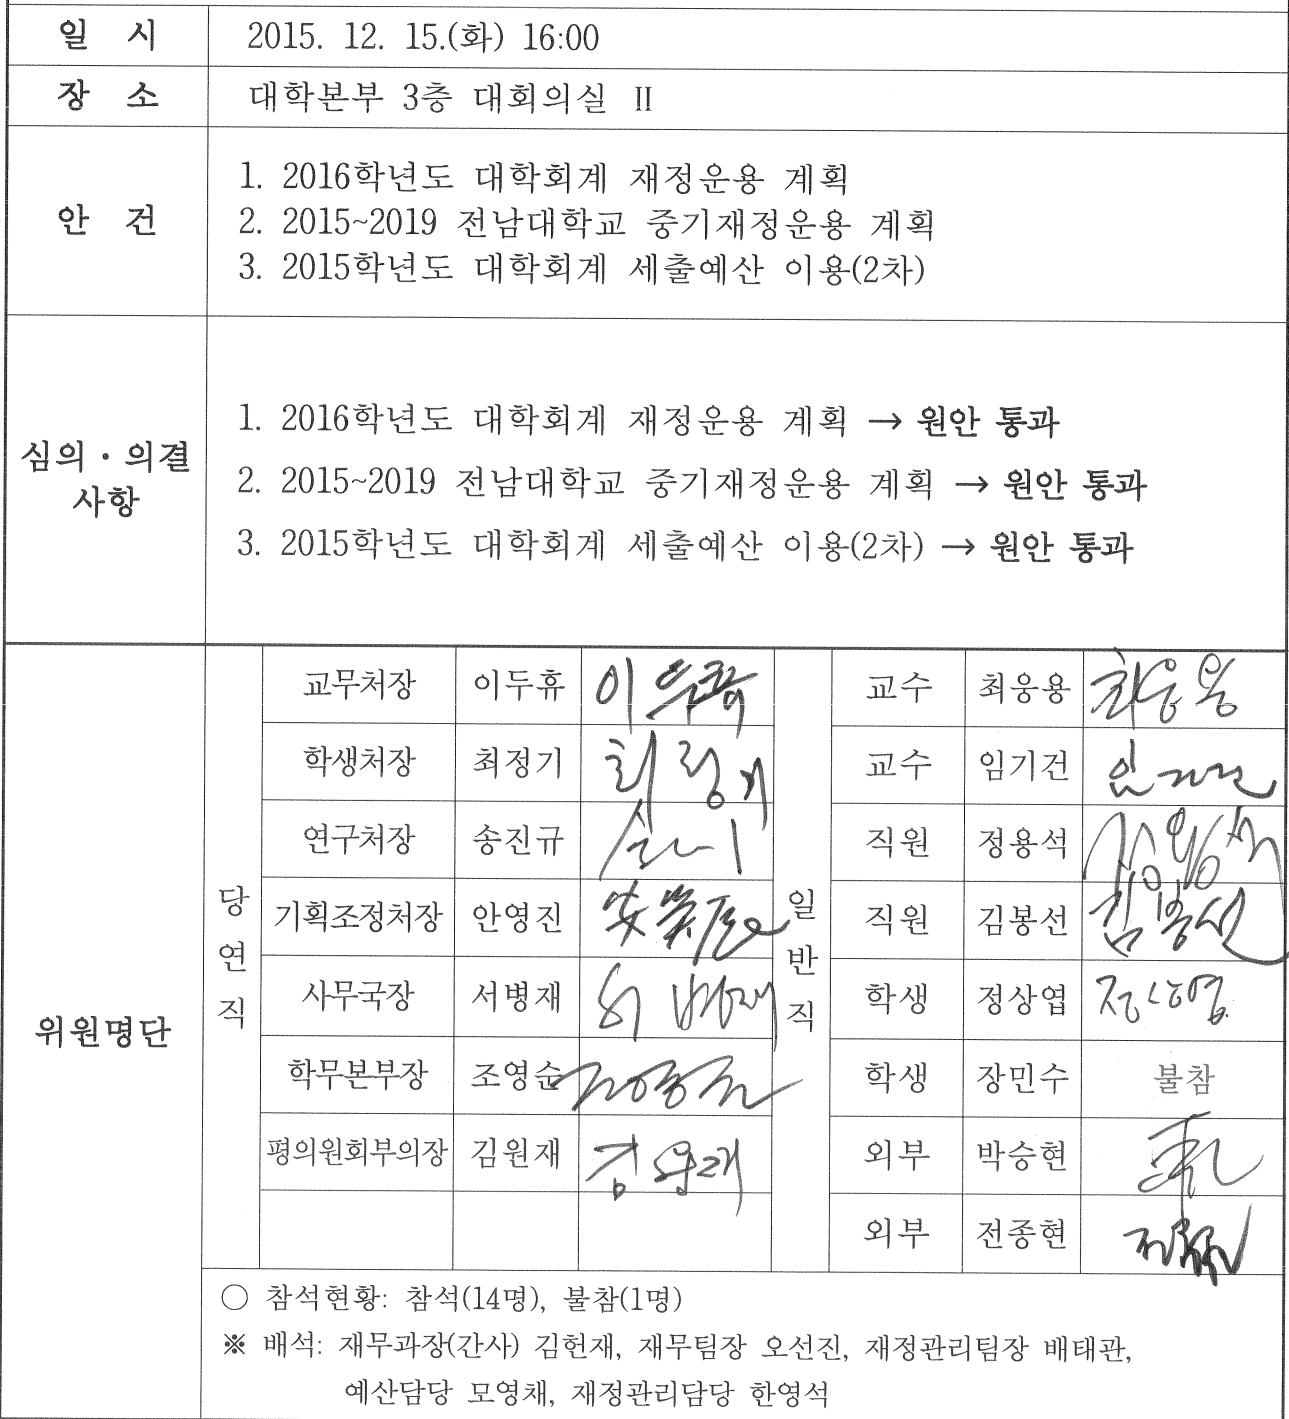 일 시 2015. 12. 15.(화) 16:00
장 소 대학본부 3층 대회의실 II
안 건
1. 2016학년도 대학회계 재정운용 계획
2. 2015~2019 전남대학교 중기재정운용 계획
3. 2015학년도 대학회계 세출예산 이용(2차)
심의·의결
사항
1. 2016학년도 대학회계 재정운용 계획 → 원안 통과
2. 2015~2019 전남대학교 중기재정운용 계획 → 원안 통과
3. 2015학년도 대학회계 세출예산 이용(2차) → 원안 통과
위원명단
당연직
교무처장 이두휴 이두휴
학생처장 최정기 최정기
연구처장 송진규
기획조정처장 안영진
사무국장 서병재 서병재
학무본부장 조영순 조영순
평의원회부의장 김원재 김원재
일반직
교수 최웅용 최웅용
교수 임기건 임기건
직원 정용석 정용석
직원 김봉선 김봉선
학생 정상엽 정상엽
학생 장민수 불참
외부 박승현
외부 전종현
○ 참석현황: 참석(14명), 불참(1명)
※ 배석: 재무과장(간사) 김헌재, 재무팀장 오선진, 재정관리팀장 배태관,
예산담당 모영채, 재정관리담당 한영석